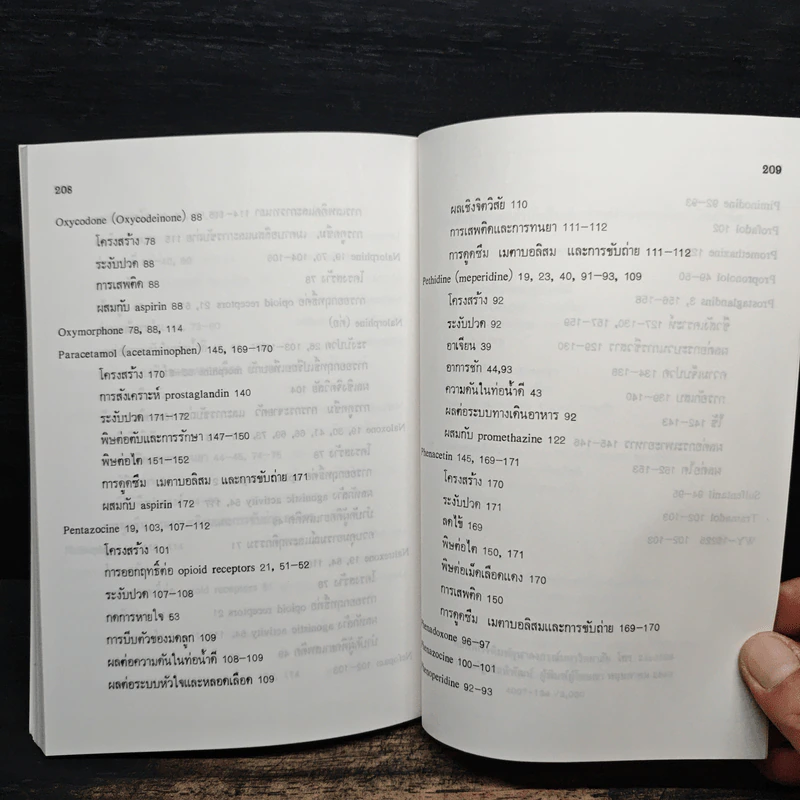 208
Oxycodone (Oxycodeinone) 88
โครงสร้าง 78
ระงับปวด 88
การเสพติด 88
ผสมกับ aspirin 88
Oxymorphone 78, 88, 114
Paracetamol (acetaminophen) 145, 169-170
โครงสร้าง 170
การสังเคราะห์ prostaglandin 140
ระงับปวด 171-172
พิษต่อตับและการรักษา 147-150
พิษต่อไต 151-152
การดูดซึม เมตาบอลิสม และการขับถ่าย 171
ผสมกับ aspirin 172
Pentazocine 19, 103, 107-112
โครงสร้าง 101
การออกฤทธิ์ต่อ opioid receptors 21, 51-52
ระงับปวด 107-108
กดการหายใจ 53
การบีบตัวของมดลูก 109
ผลต่อความดันในท่อน้ำดี 108-109
ผลต่อระบบหัวใจและหลอดเลือด 109
209
ผลเชิงจิตวิสัย 110
การเสพติดและการทนยา 111-112
การดูดซึม เมตาบอลิสม และการขับถ่าย 111-112
Pethidine (meperidine) 19, 23, 40, 91-93, 109
โครงสร้าง 92
ระงับปวด 92
อาเจียน 39
อาการชัก 44,93
ความดันในท่อน้ำดี 43
ผลต่อระบบทางเดินอาหาร 92
ผสมกับ promethazine 122
Phenacetin 145, 169-171
โครงสร้าง 170
ระงับปวด 171
ลดไข้ 169
พิษต่อไต 150, 171
พิษต่อเม็ดเลือดแดง 170
การเสพติด 150
การดูดซึม เมตาบอลิสมและการขับถ่าย 169-170
Phenadoxone 96-97
Phenazocine 100-101
Phenoperidine 92-93